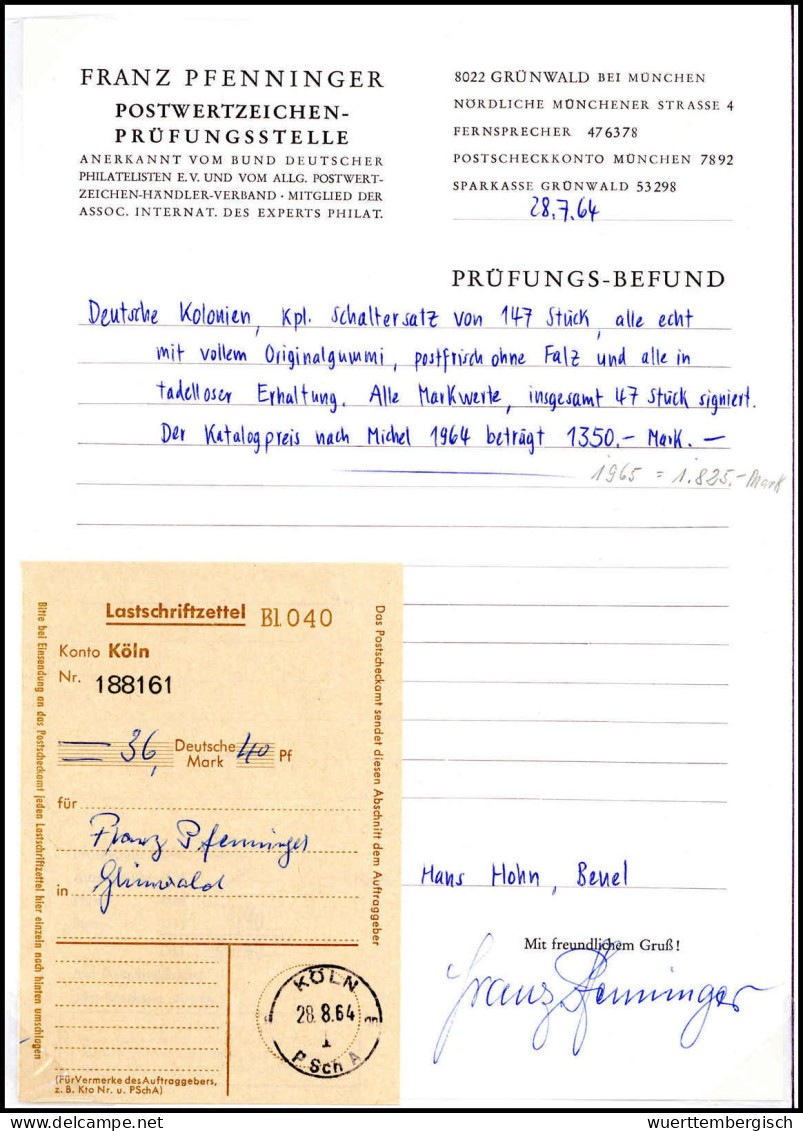 FRANZ PFENNINGER
POSTWERTZEICHEN-
PRÜFUNGSSTELLE
ANERKANNT VOM BUND DEUTSCHER
PHILATELISTEN E.V. UND VOM ALLG. POSTWERT-
ZEICHEN-HÄNDLER-VERBAND · MITGLIED DER
ASSOC. INTERNAT. DES EXPERTS PHILAT.
8022 GRÜNWALD BEI MÜNCHEN
NÖRDLICHE MÜNCHENER STRASSE 4
FERNSPRECHER 476378
POSTSCHECKKONTO MÜNCHEN 7892
SPARKASSE GRÜNWALD 53298
28.7.64
PRÜFUNGS-BEFUND
Deutsche Kolonien, Kpl. Schaltersatz von 147 Stück, alle echt
mit vollem Originalgummi, postfrisch ohne Falz und alle in
tadelloser Erhaltung. Alle Markwerte, insgesamt 47 Stück signiert.
Der Katalogpreis nach Michel 1964 beträgt 1350.- Mark. —
1965 = 1.825.- Mark
Bitte bei Einsendung an das Postscheckamt jeden Lastschriftzettel hier einzeln nach hinten umschlagen
Lastschriftzettel Bl. 040
Konto Köln
Nr. 188161
36, Deutsche Mark 40 Pf
für
Franz Pfenninger
in Grünwald
(Für Vermerke des Auftraggebers,
z. B. Kto Nr. u. PSchA)
Das Postscheckamt sendet diesen Abschnitt dem Auftraggeber
KÖLN
28.8.64
PSchA
Hans Hohn, Beuel
Mit freundlichem Gruß!
Franz Pfenninger
www.delcampe.net
wuerttembergisch